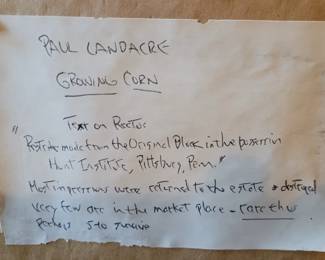 PAUL LANDACRE
GROWING CORN
Text on Recto:
"Restrike made from the Original Block in the possession
Hunt Institute, Pittsburg, Penn."
Most impressions were returned to the estate & destroyed
very few are in the market place - rare thus
Perhaps 5 to survive